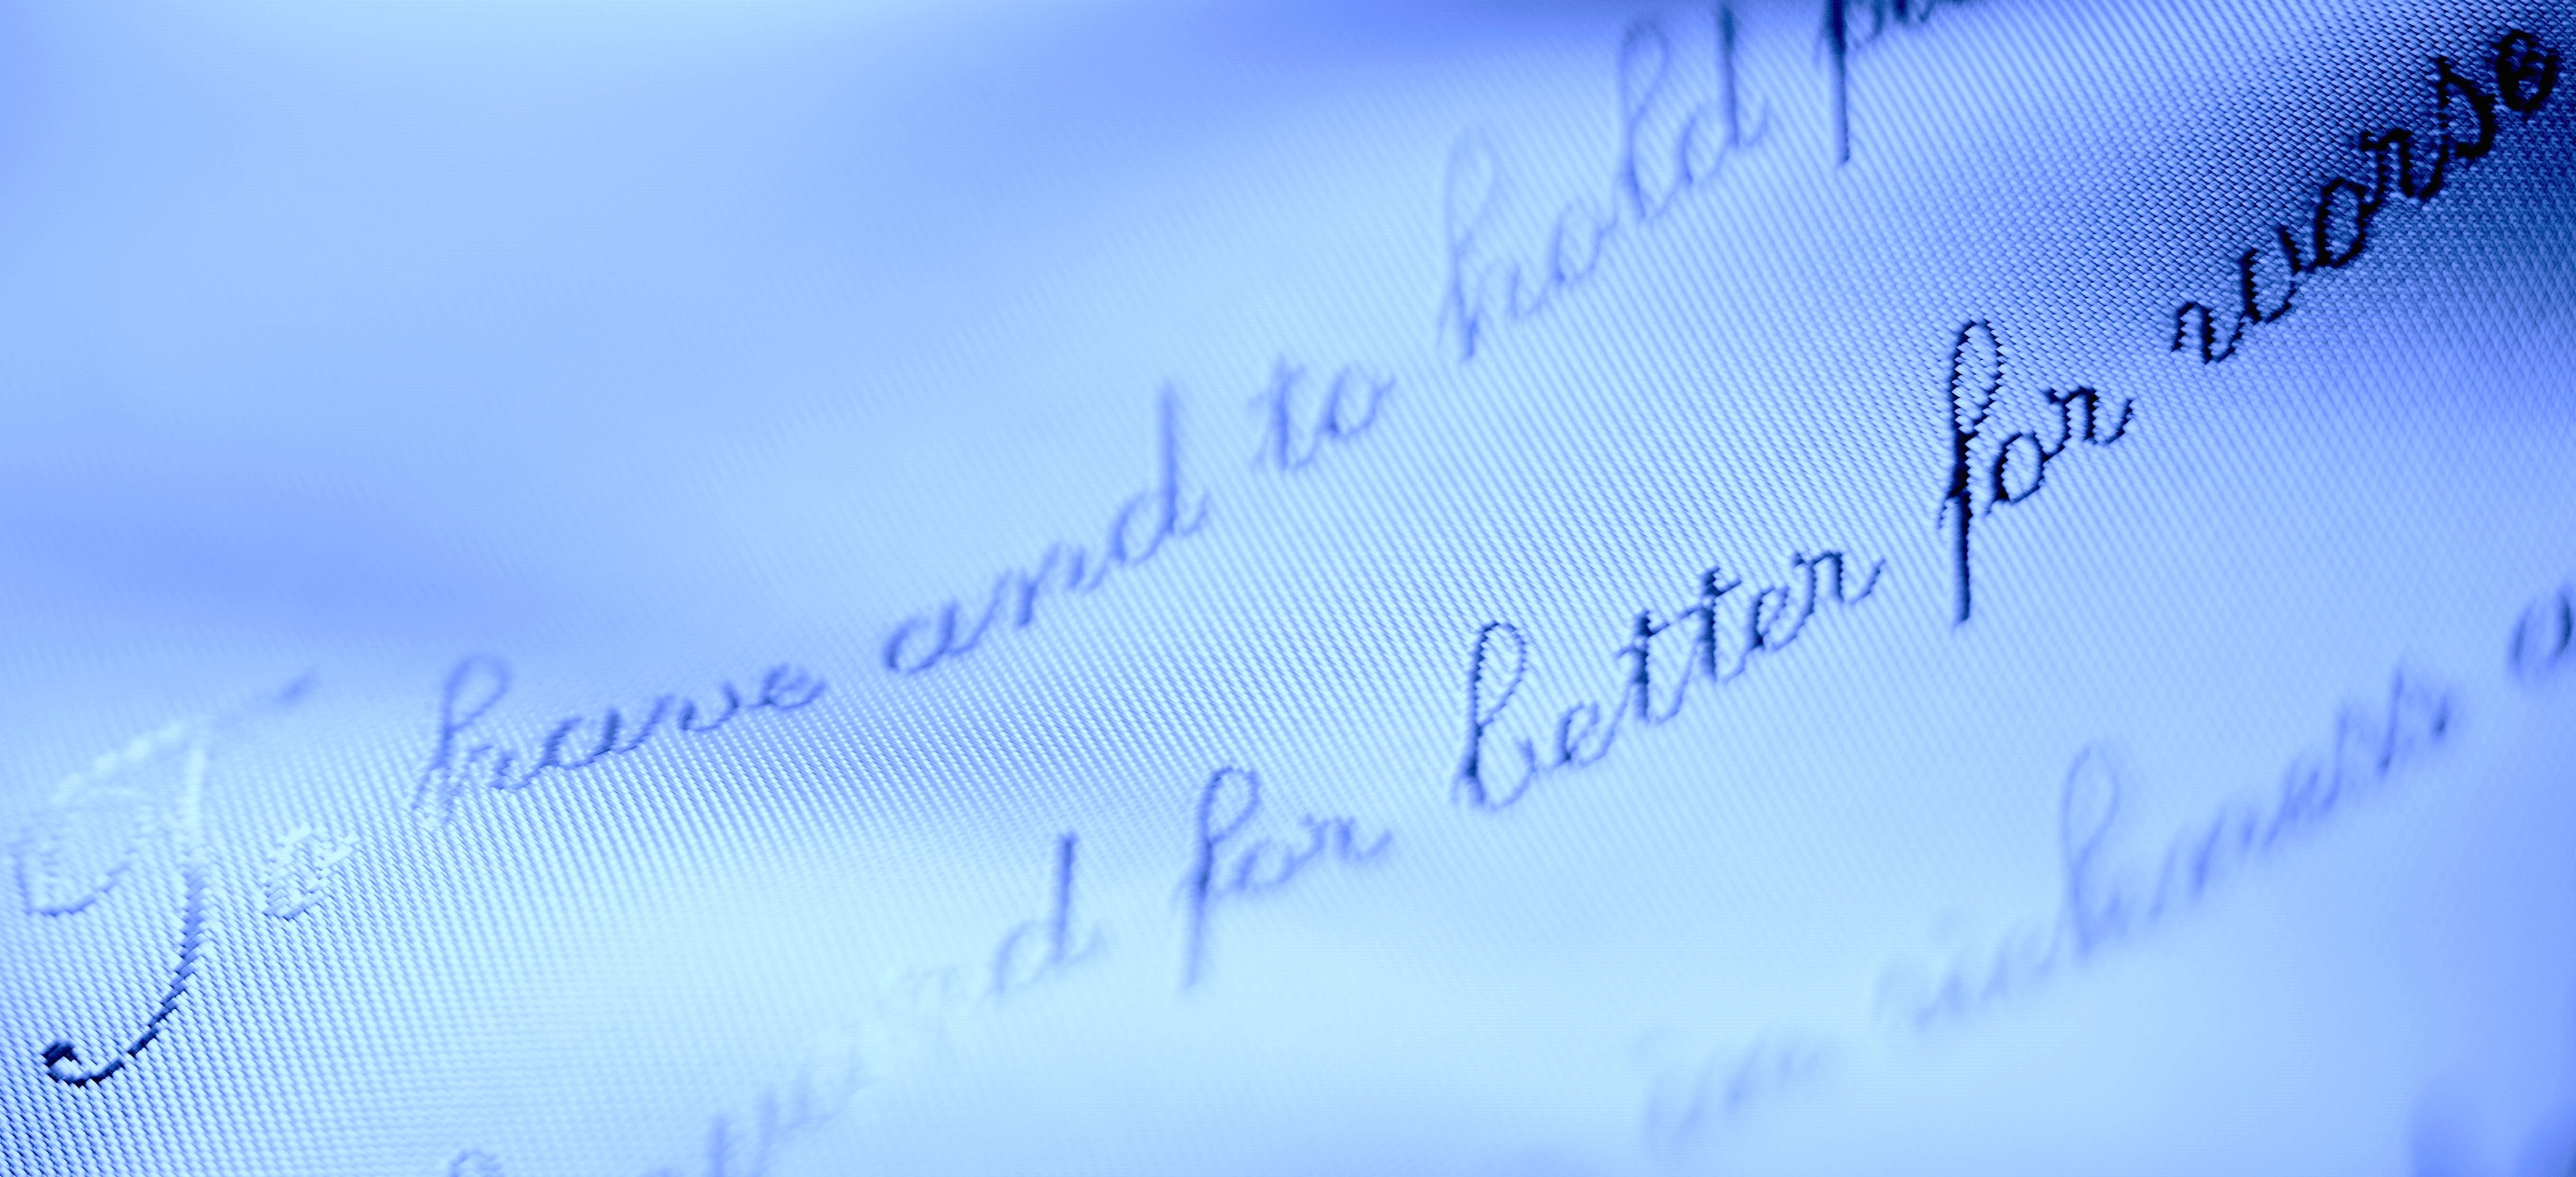 To have and to hold
for better for worse
in sickness